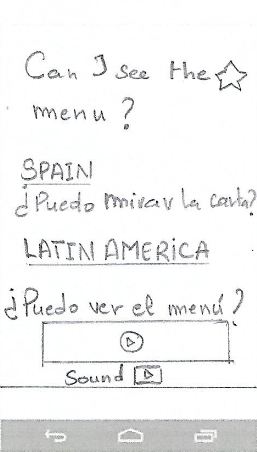 Can I see the
menu?
SPAIN
¿Puedo mirar la carta?
LATIN AMERICA
¿Puedo ver el menú?
Sound